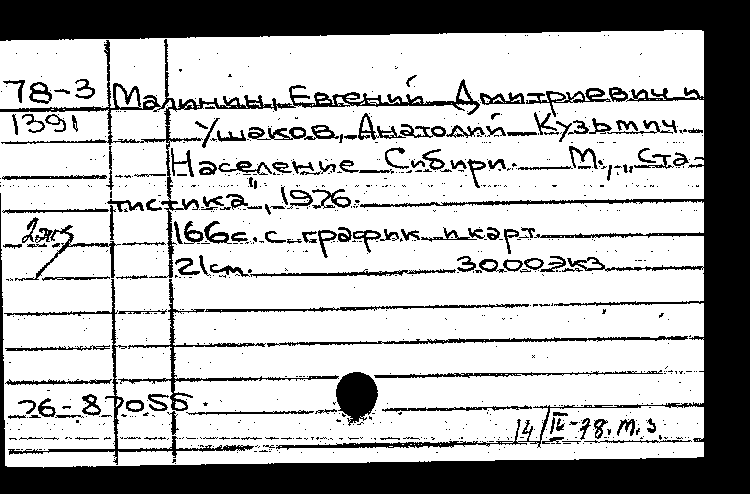 78-3 Малинин, Евгений Дмитриевич и
1391 Ушаков, Анатолий Кузьмич
Население Сибири. М., „Ста-
тистика", 1976.
2 экз 166с. с график и карт
21см. 3000экз
76-87055.
14/IV-78. М.З.